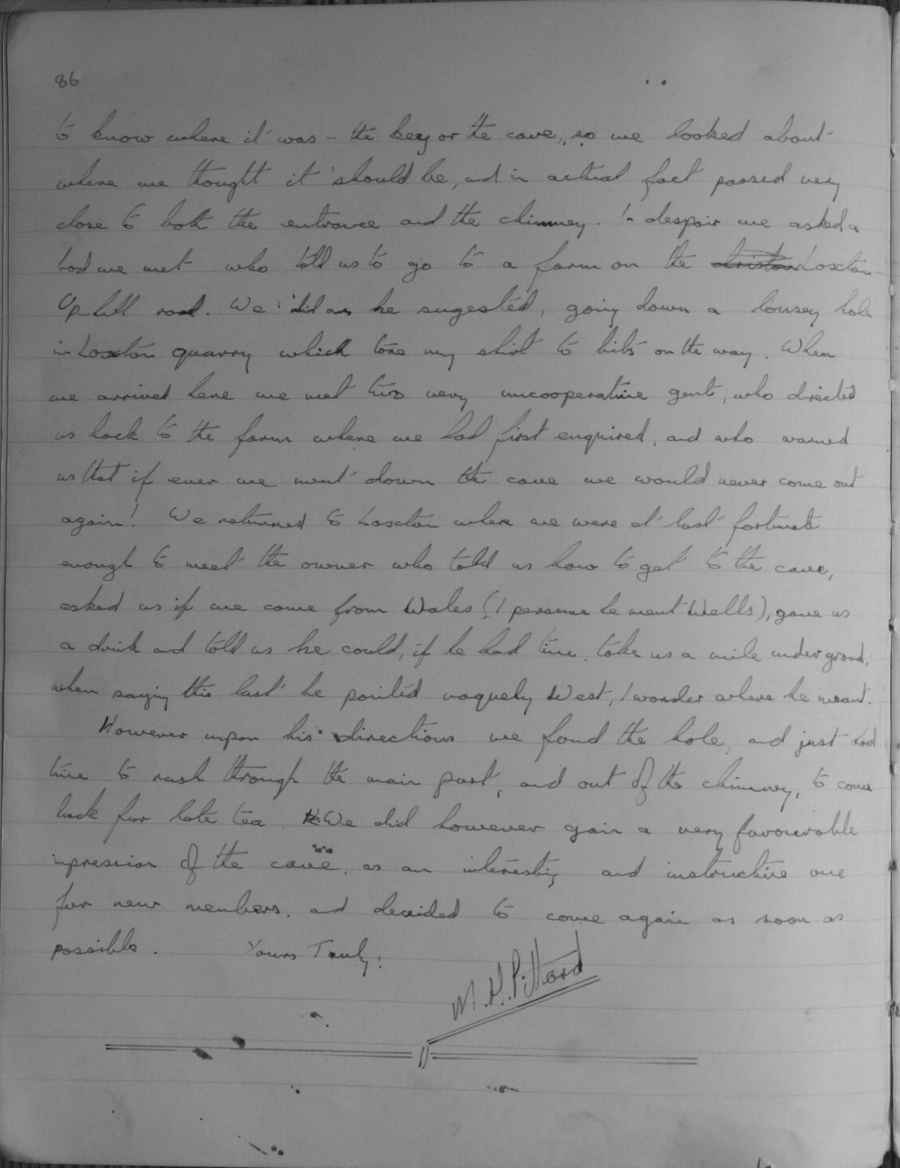 86
to know where it was - the key or the cave, so we looked about
where we thought it should be, and in actual fact passed very
close to both the entrance and the chimney. In despair we asked a
lad we met who told us to go to a farm on the Loxton
Uphill road. We did as he sugested, going down a lousey hole
in Loxton quarry which tore my shirt to bits on the way. When
we arrived here we met two very uncooperative gents, who directed
us back to the farm where we had first enquired, and who warned
us that if ever we went down the cave we would never come out
again! We returned to Loxton where we were at last fortunate
enough to meet the owner who told us how to get to the cave,
asked us if we come from Wales (I presume he meant Wells), gave us
a drink and told us he could, if he had time, take us a mile undergrond,
when saying this last he pointed vaguely West, I wonder where he meant.
However upon his directions we found the hole, and just had
time to rush through the main part, and out of the chimney, to come
back for late tea. We did however gain a very favourable
inpression of the cave, as an interesting and instructive one
for new members, and decided to come again as soon as
possible. Yours Truly:
M.H. Pillard